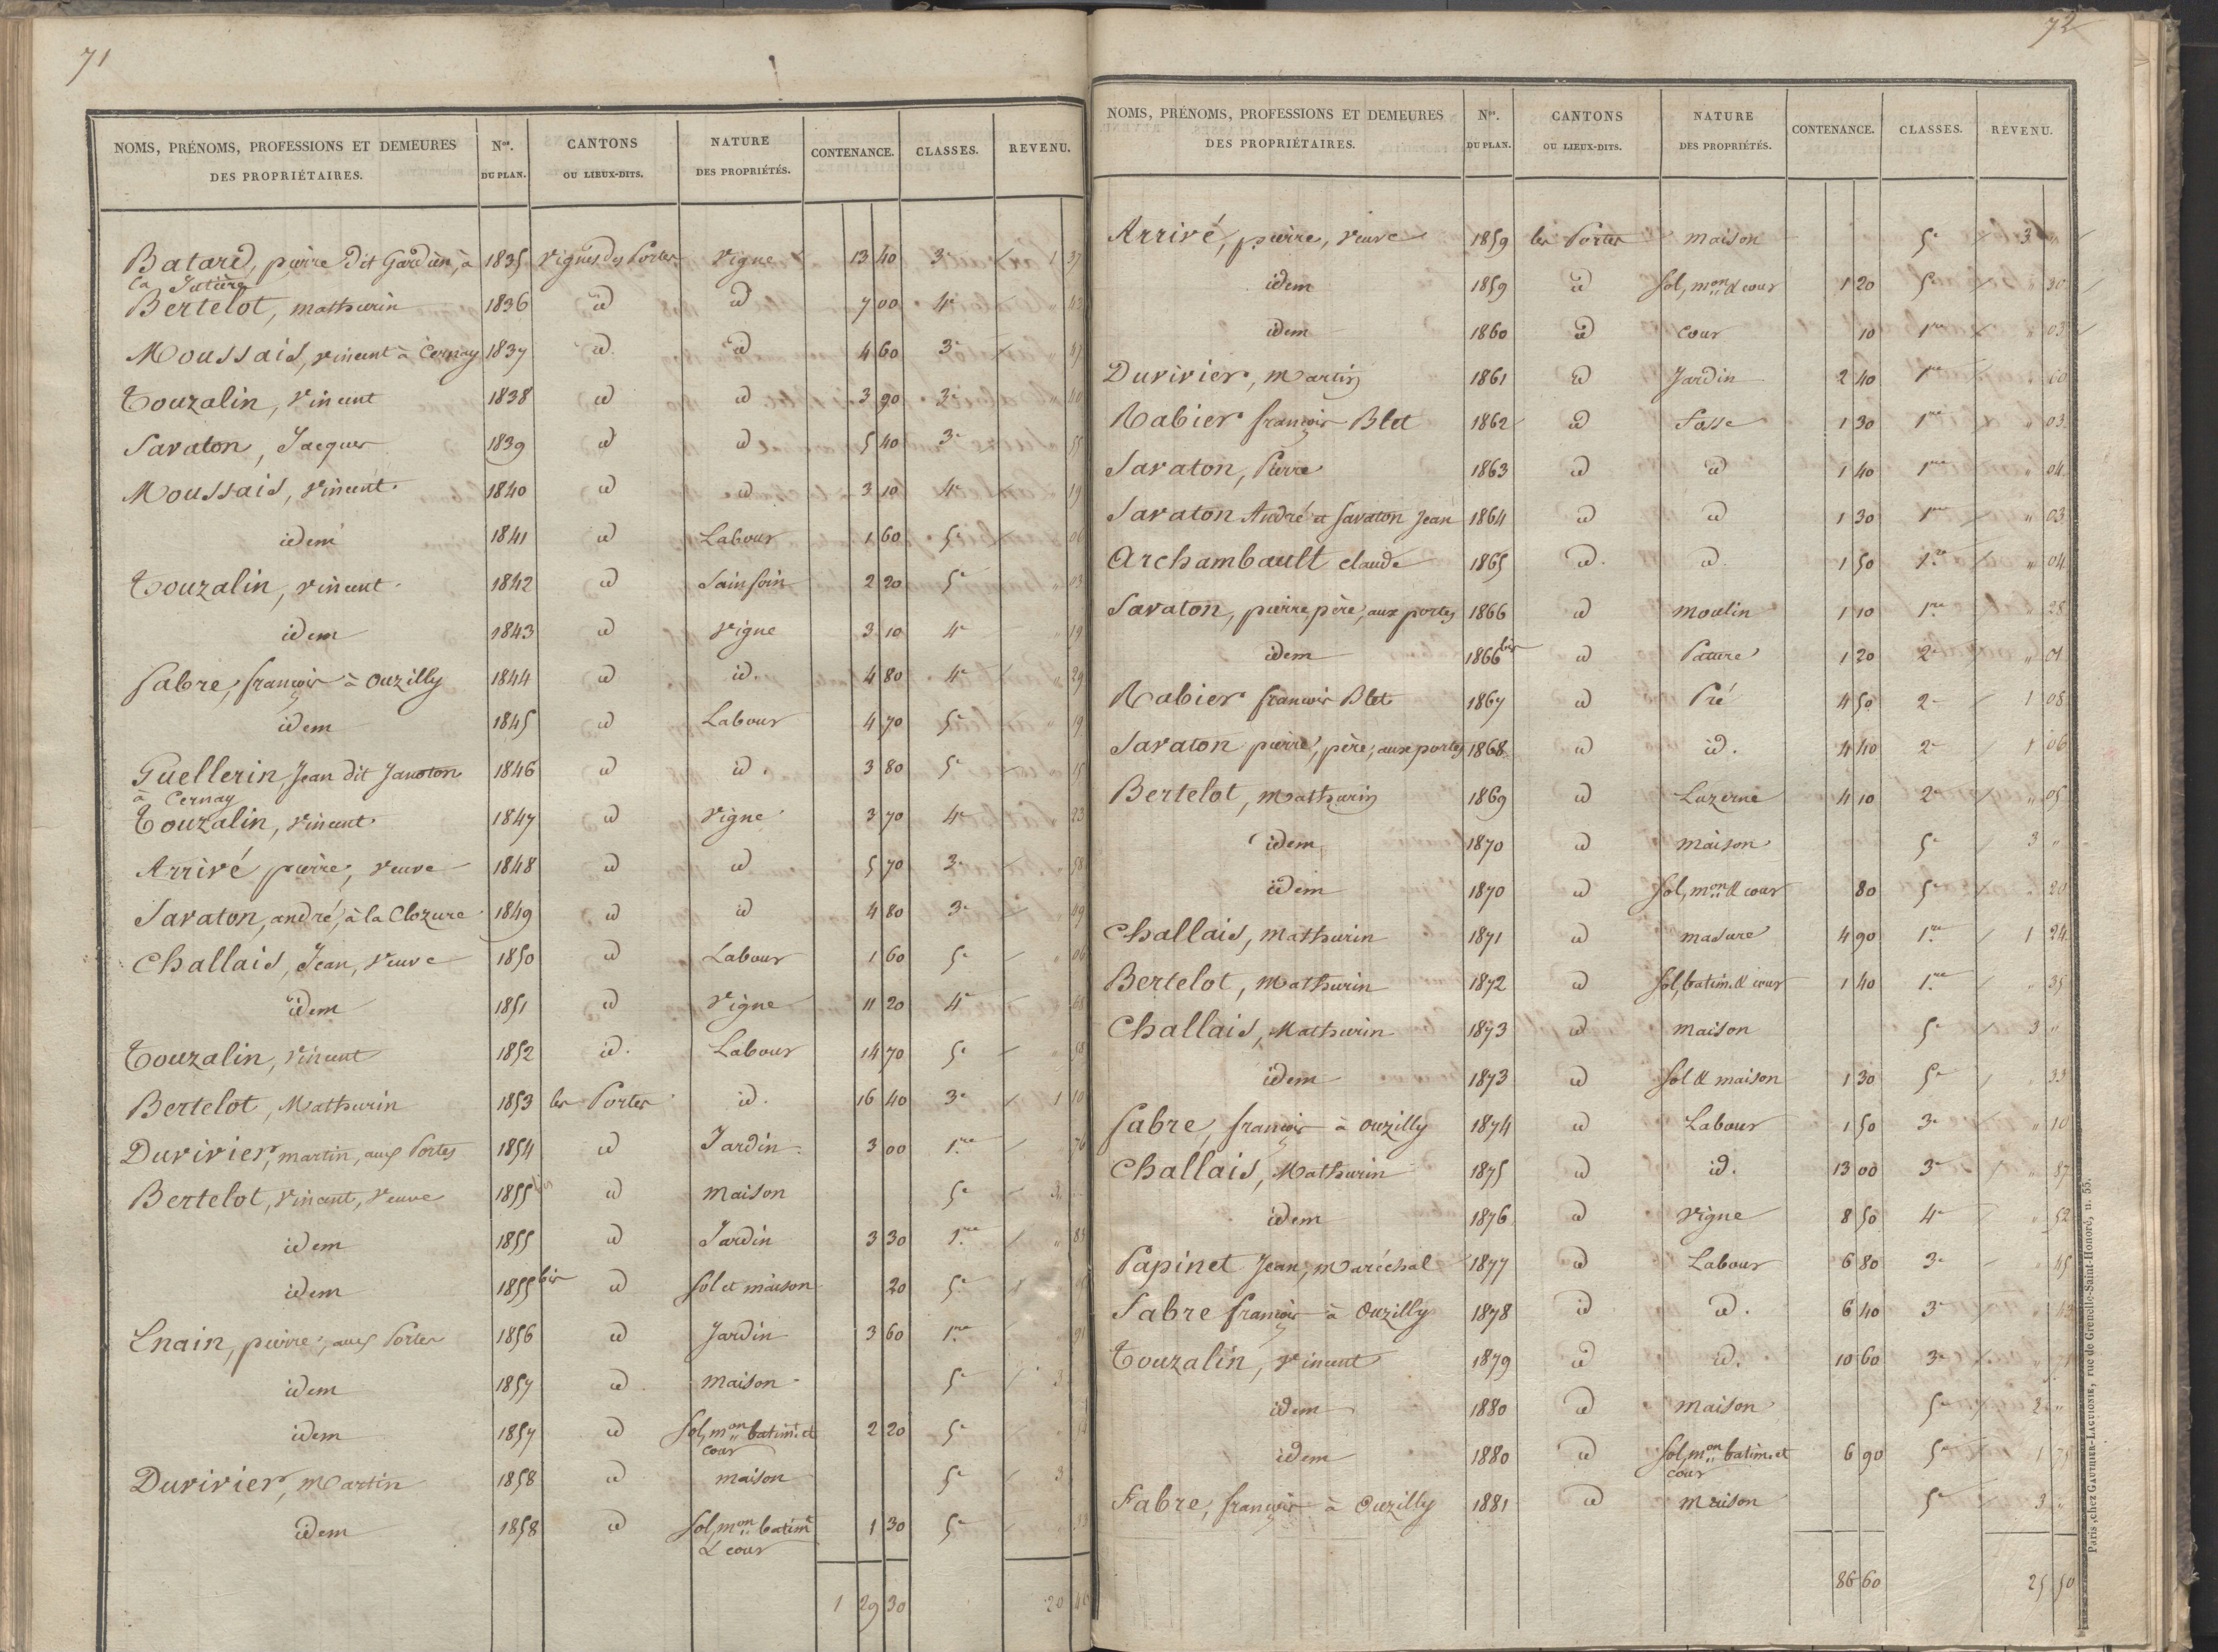 71
NOMS, PRÉNOMS, PROFESSIONS ET DEMEURES DES PROPRIÉTAIRES. Nos. DU PLAN. CANTONS OU LIEUX-DITS. NATURE DES PROPRIÉTÉS. CONTENANCE. CLASSES. REVENU.
Batard, pierre dit Gardien, à 1835 Vignes des Portes Vigne 13 40 3e 1 37
la
Bertelot, mathurin 1836 id id 7 00 4e " 43
Moussais, vincent à Cernay 1837 id. id 4 60 3e " 47
Touzalin, vincent 1838 id id 3 90 3e " 40
Savaton, Jacques 1839 id id 5 40 3e 55
Moussais, vincent 1840 id id 3 10 4e 19
idem 1841 id Labour 1 60 5e 06
Touzalin, vincent 1842 id Sainfoin 2 20 5e "
idem 1843 id vigne 3 10 4e " 19
fabre, françois à Ouzilly 1844 id id. 4 80 4e " 29
idem 1845 id Labour 4 70 5e " 19
Guellerin, Jean dit Janoton 1846 id id. 3 80 5e 15
à Cernay
Touzalin, vincent 1847 id vigne 3 70 4e 23
Arrivé pierre, veuve 1848 id id 5 70 3e 58
Savaton, andré, à la Clozure 1849 id id 4 80 3e
Challais, Jean, veuve 1850 id Labour 1 60 5e " 06
idem 1851 id vigne 11 20 4e 68
Touzalin, vincent 1852 id. Labour 14 70 5e 58
Bertelot, Mathurin 1853 les Portes id. 16 40 3e 1 10
Durivier, martin, aux Portes 1854 id Jardin 3 00 1.re 76
Bertelot, vincent, veuve 1855 bis id maison 5e 3 "
idem 1855 id Jardin 3 30 1.re "
idem 1855 bis id sol et maison 20 5e
Lnain, pierre, aux Portes 1856 id Jardin 3 60 1re 91
idem 1857 id maison 5e 3
idem 1857 id Sol, mon batimt. et 2 20 5e
cour
Durivier, Martin 1858 id maison 5e 3
idem 1858 id Sol, mon batimt 1 30 5e 33
& cour
1 29 30 20
72
NOMS, PRÉNOMS, PROFESSIONS ET DEMEURES DES PROPRIÉTAIRES. Nos. DU PLAN. CANTONS OU LIEUX-DITS. NATURE DES PROPRIÉTÉS. CONTENANCE. CLASSES. REVENU.
Arrivé, pierre, veuve 1859 les Portes maison 5e 3 "
idem 1859 id Sol, mon & cour 1 20 5e 30
idem 1860 id cour 10 1re 03
Durivier, Martin 1861 id Jardin 2 40 1re 60
Rabier françois Blet 1862 id fosse 1 30 1re " 03
Savaton, Pierre 1863 id id 1 40 1re 04
Savaton André et Savaton Jean 1864 id id 1 30 1re " 03
Archambault claude 1865 id. id. 1 50 1re " 04
Savaton, pierre, père, aux portes 1866 id moulin 1 10 1re " 28
idem 1866 bis id Pature 1 20 2e " 01
Rabier françois Blet 1867 id Pré 4 50 2e 1 08
Savaton pierre, père, aux portes 1868 id id. 4 40 2e 1 06
Bertelot, Mathurin 1869 id Luzerne 4 10 2e "
idem 1870 id maison 5e 3 "
idem 1870 id Sol, mon & cour 80 5e 20
Challais, Mathurin 1871 id masure 4 90 1re 1 24
Bertelot, Mathurin 1872 id Sol, batim. & cour 1 40 1.re " 35
Challais, Mathurin 1873 id maison 5e 3 "
idem 1873 id Sol & maison 1 30 5e 33
fabre, françois à ouzilly 1874 id Labour 1 50 3e " 10
Challais, Mathurin 1875 id id. 13 00 3e " 87
idem 1876 id vigne 8 50 4e " 52
Papinet Jean, Maréchal 1877 id Labour 6 80 3e 45
Fabre françois à Ouzilly 1878 id id. 6 40 3e 43
Touzalin, vincent 1879 id id. 10 60 3e " 71
idem 1880 id Maison 5e "
idem 1880 id Sol, mon batim. et 6 90 5e 1 75
cour
Fabre, françois à Ouzilly 1881 id maison 5e 3 "
86 60 25 50
Paris, chez GAUTHIER-LAGUIONIE, rue de Grenelle-Saint-Honoré, n. 55.